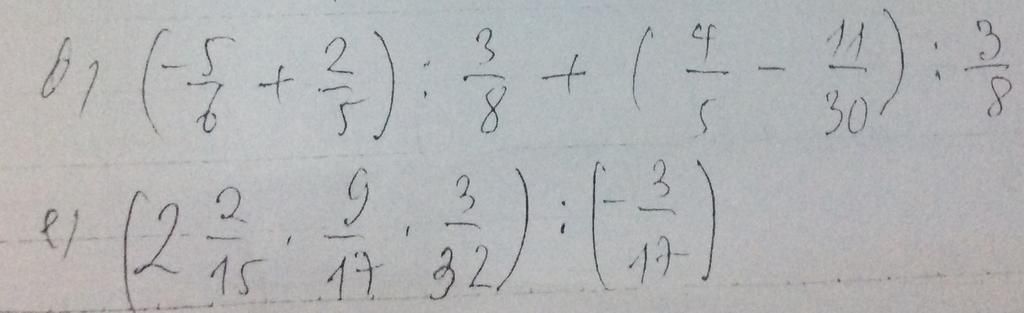 в) (-5/6 + 2/5) : 3/8 + (4/5 - 11/30) : 3/8
е) (2 2/15 · 9/17 · 3/32) : (-3/17)